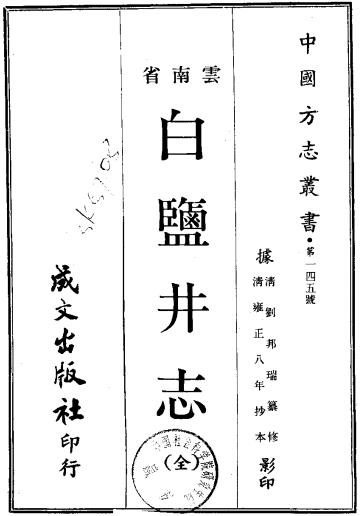 中國方志叢書・第一四五號
據清劉邦瑞纂修
清雍正八年抄本
影印
雲南省
白鹽井志
(全)
成文出版社印行